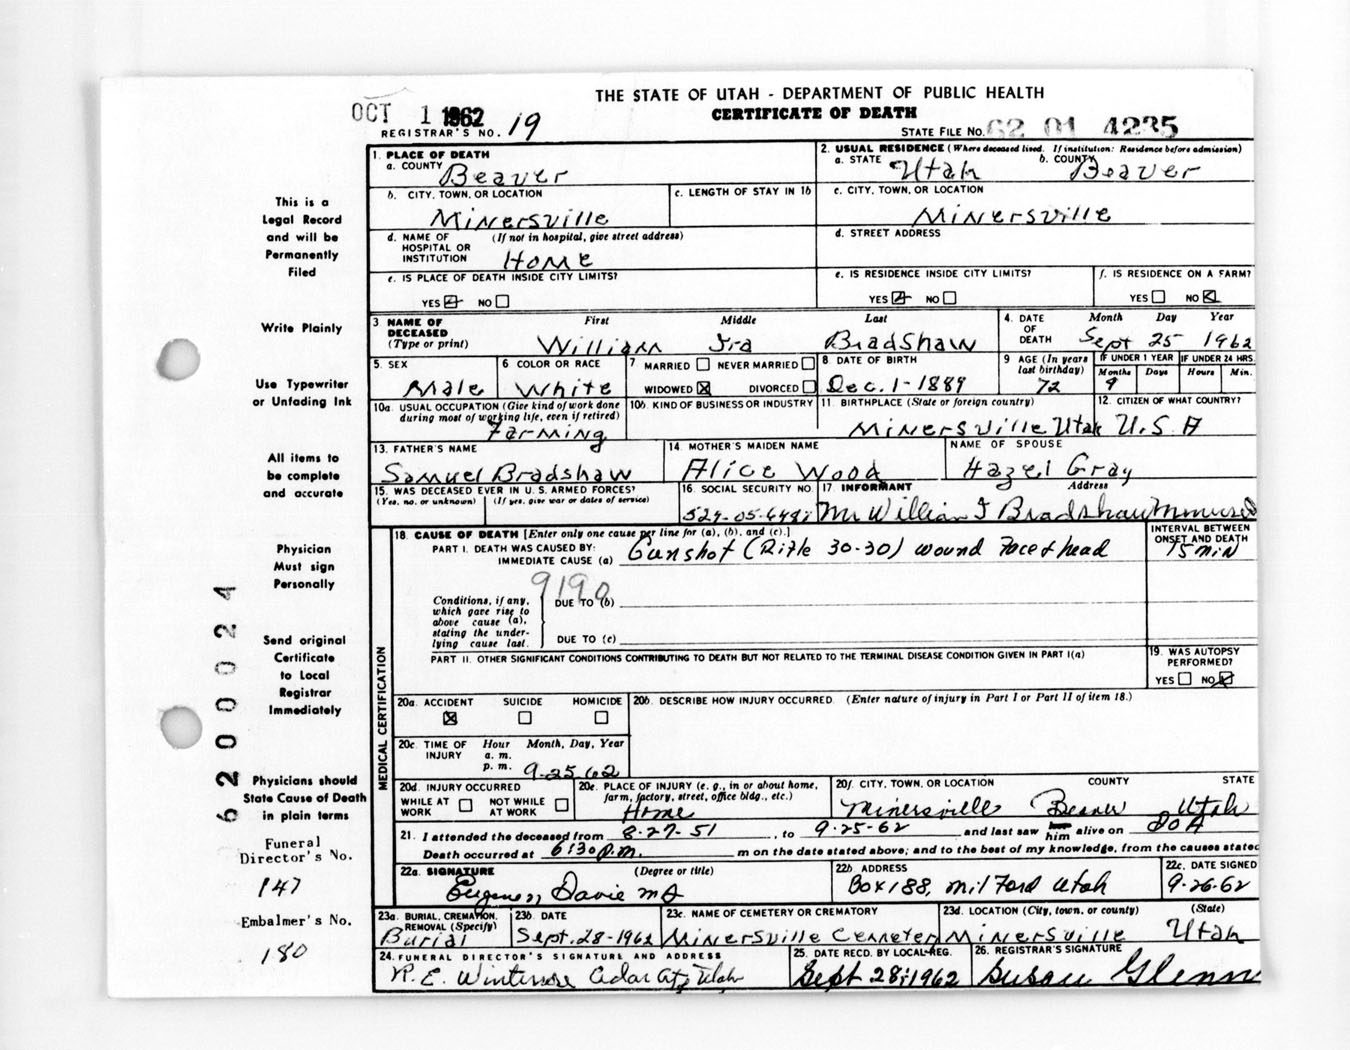 THE STATE OF UTAH - DEPARTMENT OF PUBLIC HEALTH
CERTIFICATE OF DEATH
OCT 1 1962
REGISTRAR'S NO. 19
STATE FILE NO. 62 01 4235
This is a
Legal Record
and will be
Permanently
Filed
Write Plainly
Use Typewriter
or Unfading Ink
All items to
be complete
and accurate
Physician
Must sign
Personally
Send original
Certificate
to Local
Registrar
Immediately
Physicians should
State Cause of Death
in plain terms
Funeral
Director's No.
147
Embalmer's No.
180
6200024
1. PLACE OF DEATH
a. COUNTY Beaver
2. USUAL RESIDENCE (Where deceased lived. If institution: Residence before admission)
a. STATE Utah b. COUNTY Beaver
b. CITY, TOWN, OR LOCATION Minersville
c. LENGTH OF STAY IN 1b
c. CITY, TOWN, OR LOCATION Minersville
d. NAME OF HOSPITAL OR INSTITUTION (If not in hospital, give street address) Home
d. STREET ADDRESS
e. IS PLACE OF DEATH INSIDE CITY LIMITS?
YES NO
e. IS RESIDENCE INSIDE CITY LIMITS?
YES NO
f. IS RESIDENCE ON A FARM?
YES NO
3 NAME OF DECEASED (Type or print)
First Middle Last
William Ira Bradshaw
4. DATE OF DEATH
Month Day Year
Sept 25 1962
5. SEX Male
6 COLOR OR RACE White
7 MARRIED NEVER MARRIED
WIDOWED DIVORCED
8 DATE OF BIRTH Dec. 1-1889
9 AGE (In years last birthday) 72
IF UNDER 1 YEAR
Months Days
9
IF UNDER 24 HRS.
Hours Min.
10a. USUAL OCCUPATION (Give kind of work done during most of working life, even if retired) Farming
10b. KIND OF BUSINESS OR INDUSTRY
11. BIRTHPLACE (State or foreign country) Minersville Utah
12. CITIZEN OF WHAT COUNTRY? U.S.A
13. FATHER'S NAME Samuel Bradshaw
14. MOTHER'S MAIDEN NAME Alice Wood
NAME OF SPOUSE Hazel Gray
15. WAS DECEASED EVER IN U. S. ARMED FORCES?
(Yes, no, or unknown) (If yes, give war or dates of service)
16. SOCIAL SECURITY NO.
17. INFORMANT Address
Mr William I Bradshaw
MEDICAL CERTIFICATION
18. CAUSE OF DEATH [Enter only one cause per line for (a), (b), and (c).]
PART I. DEATH WAS CAUSED BY:
IMMEDIATE CAUSE (a) Gunshot (Rifle 30-30) wound face & head
INTERVAL BETWEEN ONSET AND DEATH
15 min
9190
Conditions, if any, which gave rise to above cause (a), stating the underlying cause last.
DUE TO (b)
DUE TO (c)
PART II. OTHER SIGNIFICANT CONDITIONS CONTRIBUTING TO DEATH BUT NOT RELATED TO THE TERMINAL DISEASE CONDITION GIVEN IN PART I(a)
19. WAS AUTOPSY PERFORMED?
YES NO
20a. ACCIDENT SUICIDE HOMICIDE
20b. DESCRIBE HOW INJURY OCCURRED. (Enter nature of injury in Part I or Part II of item 18.)
20c. TIME OF INJURY
Hour Month, Day, Year
a. m.
p. m. 9-25-62
20d. INJURY OCCURRED
WHILE AT WORK NOT WHILE AT WORK
20e. PLACE OF INJURY (e. g., in or about home, farm, factory, street, office bldg., etc.) Home
20f. CITY, TOWN, OR LOCATION COUNTY STATE
Minersville Beaver Utah
21. I attended the deceased from 8-27-51, to 9-25-62 and last saw her him alive on DOA
Death occurred at 6:30 p.m. m on the date stated above; and to the best of my knowledge, from the causes stated
22a. SIGNATURE (Degree or title)
Davie MD
22b. ADDRESS
Box 188, Milford Utah
22c. DATE SIGNED
9-26-62
23a. BURIAL, CREMATION, REMOVAL (Specify) Burial
23b. DATE Sept. 28-1962
23c. NAME OF CEMETERY OR CREMATORY Minersville Cemetery
23d. LOCATION (City, town, or county) (State)
Minersville Utah
24. FUNERAL DIRECTOR'S SIGNATURE AND ADDRESS
R. E. Winterose Cedar City Utah
25. DATE RECD. BY LOCAL REG.
Sept 28, 1962
26. REGISTRAR'S SIGNATURE
Susan Glenn